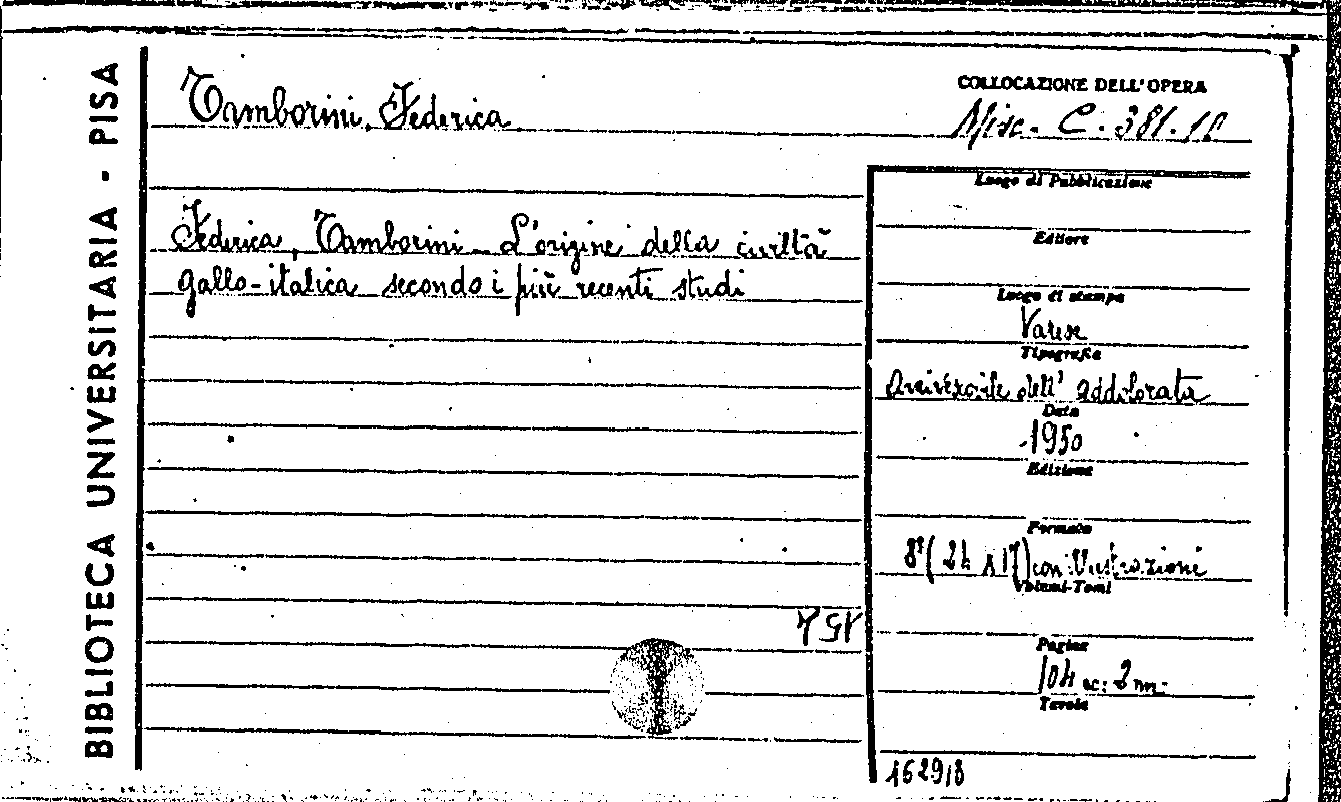 BIBLIOTECA UNIVERSITARIA - PISA
Tamborini, Federica
COLLOCAZIONE DELL'OPERA
Misc. C. 381.10
Federica, Tamborini - L'origine della civiltà
gallo-italica secondo i più recenti studi
Luogo di Pubblicazione
Editore
Luogo di stampa
Varese
Tipografia
dell' addolorata
Data
1950
Edizione
Formato
8º (24 x 17) con illustrazioni
Volumi-Tomi
Pagine
104 2 n.
Tavole
16298